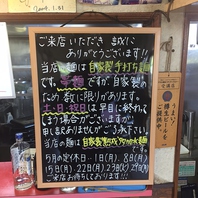 ご来店いただき 誠に
ありがとうございます!!
当店の麺は自家製手打ち麺
です。
ですが、自家製の
ため 数に限りがあります。
土・日・祝日は 早目に終わって
しまう場合がございますが
申し訳ありませんがご了承下さい。
当店の麺は自家製熟成多加水麺
5月の定休日…1日(月) 8日(月)
15日(月) 22日(月) 23日(火) 29日(月)
ご来店お待ちしております!!